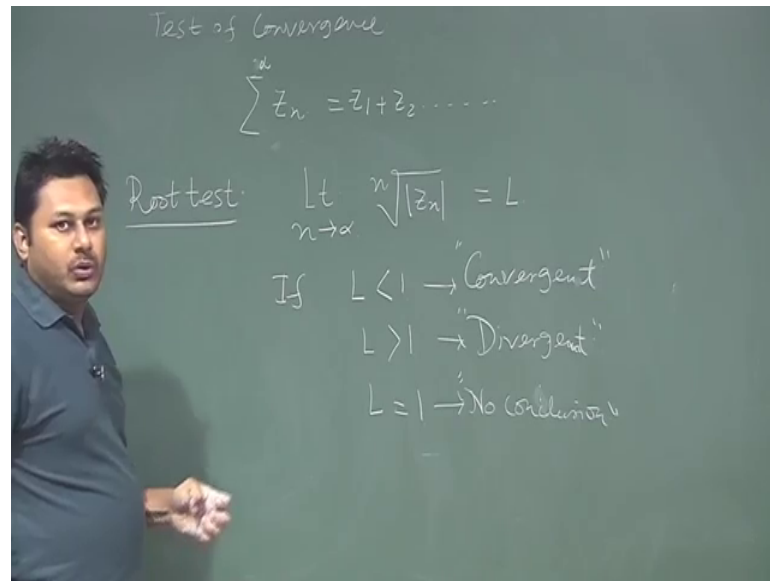 Test of Convergence
∑^∝ Zn = Z1 + Z2 .......
Root test. Lt n→∝ ⁿ√|Zn| = L
If L < 1 → "Convergent"
L > 1 → "Divergent"
L = 1 → "No conclusion"